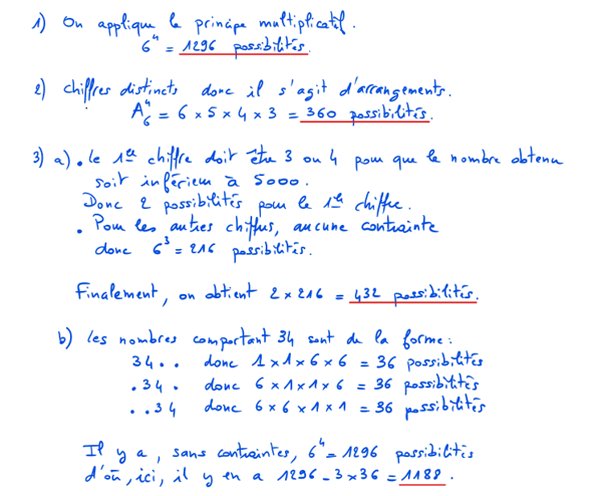 1) On applique le principe multiplicatif.
6⁴ = 1296 possibilités.
2) chiffres distincts donc il s'agit d'arrangements.
A₆⁴ = 6 × 5 × 4 × 3 = 360 possibilités.
3) a) • le 1er chiffre doit être 3 ou 4 pour que le nombre obtenu
soit inférieur à 5000.
Donc 2 possibilités pour le 1er chiffre.
• Pour les autres chiffres, aucune contrainte
donc 6³ = 216 possibilités.
Finalement, on obtient 2 × 216 = 432 possibilités.
b) les nombres comportant 34 sont de la forme :
34.. donc 1 × 1 × 6 × 6 = 36 possibilités
.34. donc 6 × 1 × 1 × 6 = 36 possibilités
..34 donc 6 × 6 × 1 × 1 = 36 possibilités
Il y a, sans contraintes, 6⁴ = 1296 possibilités
d'où, ici, il y en a 1296 - 3 × 36 = 1188.